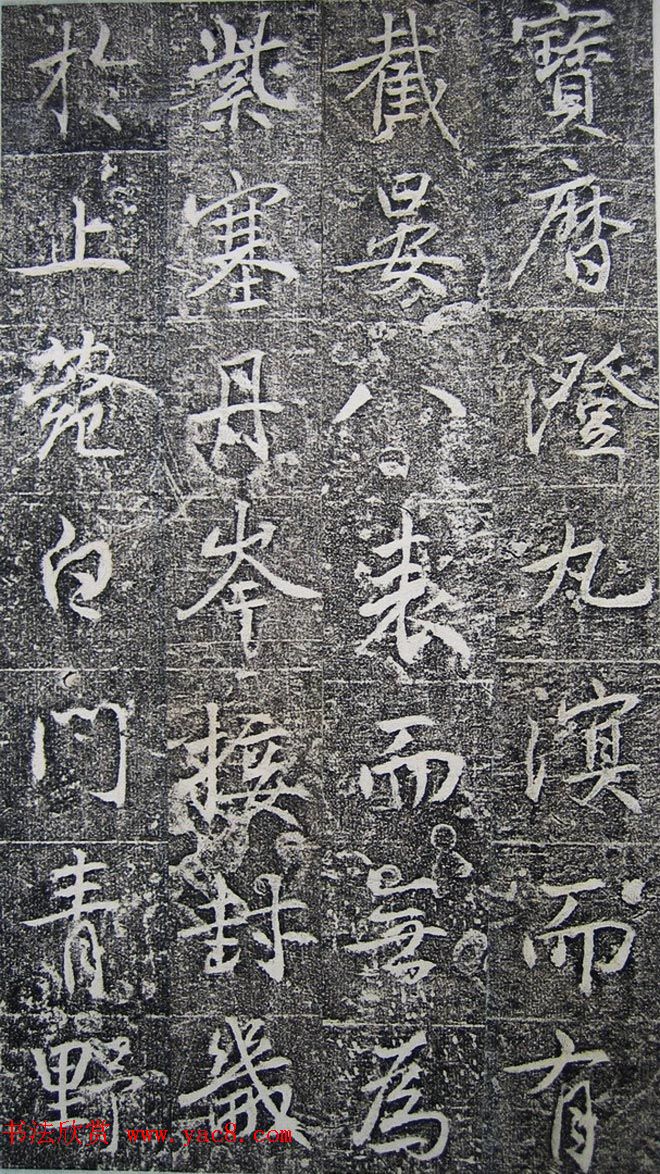 寶曆澄九溟而有
截晏八表而無為
紫塞丹岑接封畿
於止蕘白門青野
书法欣赏 www.yac8.com